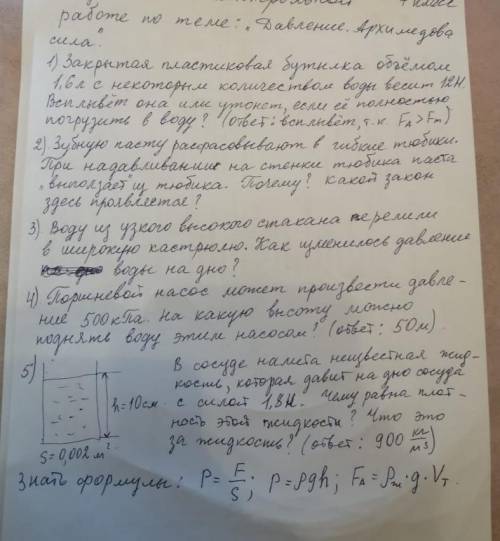 7 класс
работе по теме: „Давление. Архимедова
сила".
1) Закрытая пластиковая бутылка объёмом
1,6 л с некоторым количеством воды весит 12Н.
Всплывёт она или утонет, если её полностью
погрузить в воду? (ответ: всплывёт, т.к. FA > Fт)
2) Зубную пасту расфасовывают в гибкие тюбики.
При надавливании на стенки тюбика паста
„выползает" из тюбика. Почему? Какой закон
здесь проявляется?
3) Воду из узкого высокого стакана перелили
в широкую кастрюлю. Как изменилось давление
воды на дно?
4) Поршневой насос может произвести давле-
ние 500кПа. На какую высоту можно
поднять воду этим насосом? (ответ: 50м)
5) В сосуде налита неизвестная жид-
кость, которая давит на дно сосуда
с силой 1,8Н. Чему равна плот-
ность этой жидкости? Что это
за жидкость? (ответ: 900 кг/м3)
h=10см
S=0,002 м2
Знать формулы: P = F/S; P = ρgh; FA = ρж·g·Vт.